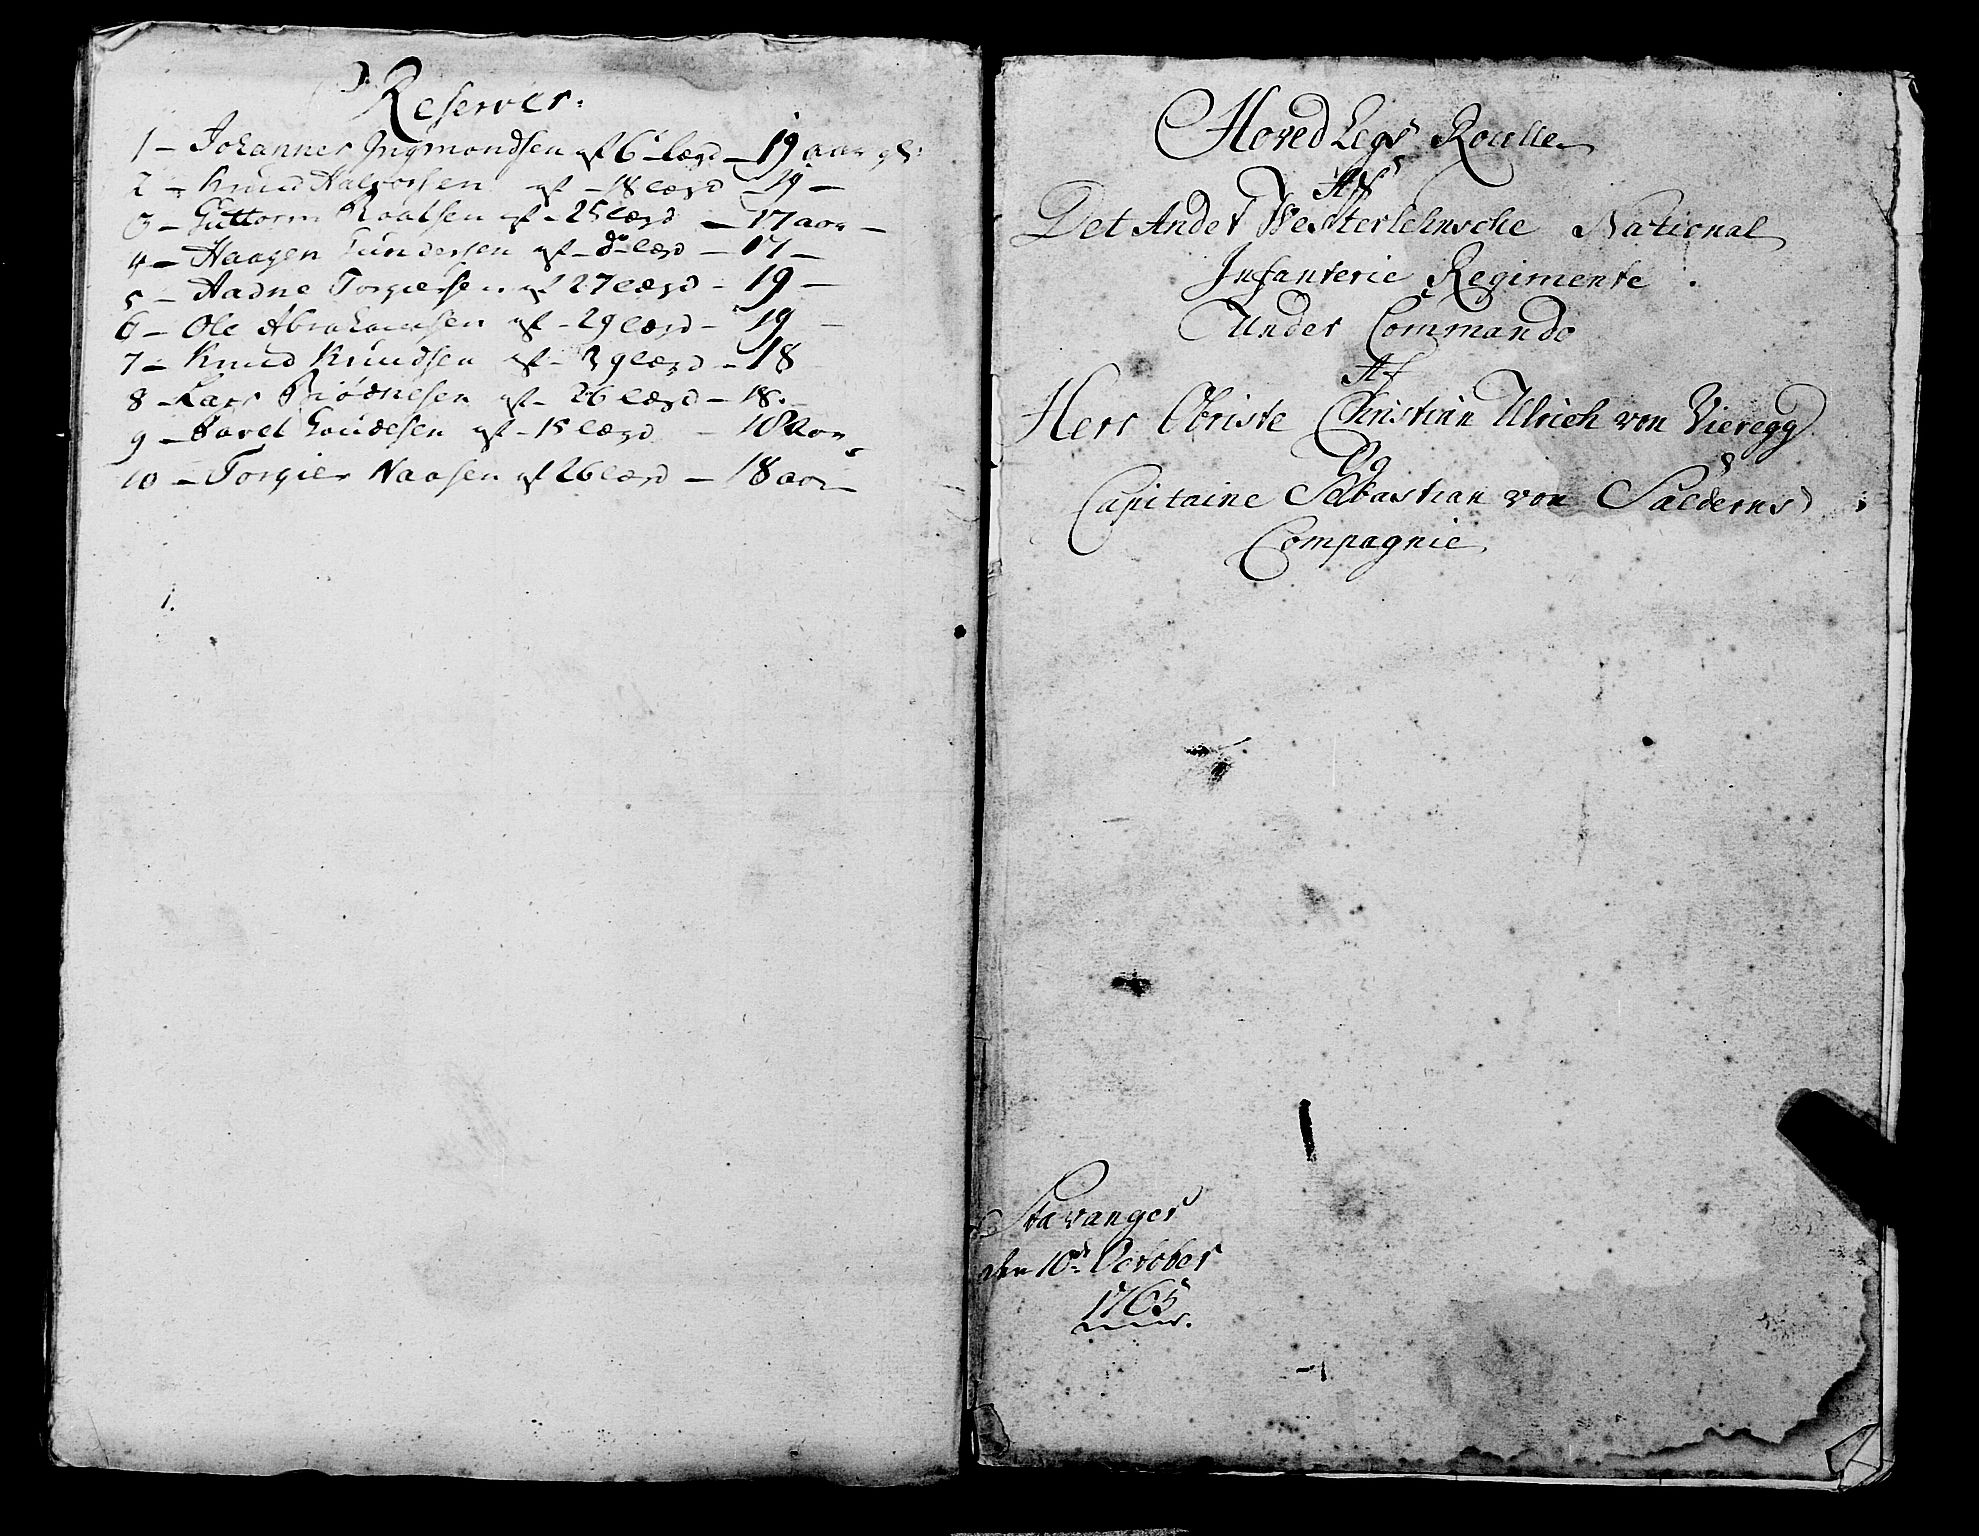 Reserver.
1 – Johannes Ingmondsen af 6 – lægd – 19 aar gl:
2 – Knud Halvorsen af – 18 lægd – 19 –
3 – Guttorm Roalsen af – 25 lægd – 17 aar –
4 – Haagen Gundersen af – do lægd – 17 –
5 – Aadne Torgiersen af 27 lægd – 19 –
6 – Ole Abrahamsen af – 29 lægd – 19 –
7 – Knud Knudsen af – 39 lægd – 18
8 – Lars Biødnesen af – 26 lægd – 18.
9 – Tavel af – 15 lægd – 18 aar
10 – Torgier Naasen af 26 lægd – 18 aar –
1.
Hoved Legs Roulle
Af
Det Andet Westerlehnsche National
Infanterie Regimente
Under Commando
Af
Herr Obriste Christian Ulrich von Vieregg
Og
Capitaine Sebastian von Salderns
Compagnie
Stavanger
den 10de October
1765